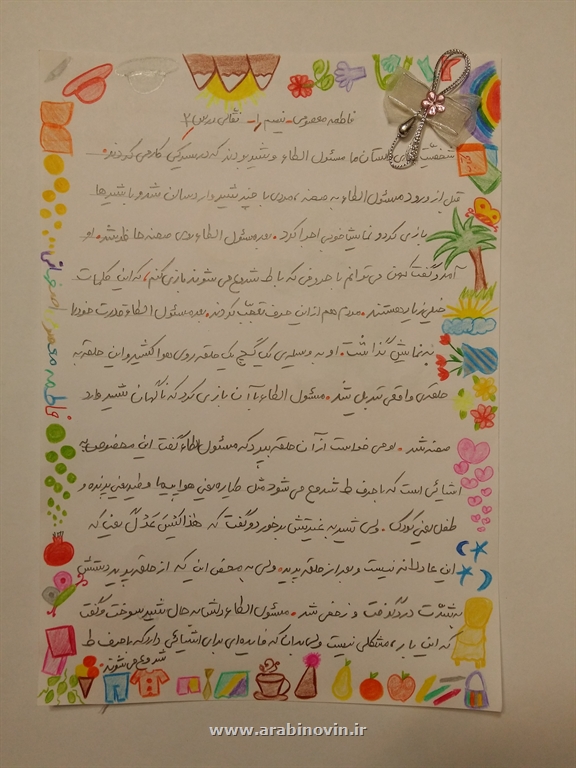 فاطمه معصومی - نسیم راد - نقالی درس ۲
داستان ما مسئول الطاء و شیر بودند که در سیرک کار می کردند.
قبل از ورود مسئول الطاء به صحنه، مردی با چند شیر وارد سالن شد و با شیرها
بازی کرد و نمایش خوبی اجرا کرد. بعد مسئول الطاء روی صحنه ظاهر شد. او
آمد و گفت که من می توانم با حروفی که با ط شروع می شوند بازی کنم، که این کلمات
خیلی زیاد هستند. مردم هم از این حرف تعجب کردند. بعد مسئول الطاء قدرت خود را
به نمایش گذاشت. او به وسیله ی یک گچ یک حلقه روی هوا کشید و این حلقه به
حلقه ی واقعی تبدیل شد. مسئول الطاء با آن بازی کرد که ناگهان شیر وارد
صحنه شد. او می خواست از آن حلقه بپرد که مسئول الطاء گفت این مخصوص به
اشیائی است که با حرف ط شروع می شود مثل طیاره یعنی هواپیما و طیر یعنی پرنده و
طفل یعنی کودک. ولی شیر به غیرتش برخورد و گفت که هذا لیس عدل یعنی که
این عادلانه نیست و بعد از حلقه پرید. ولی به محض این که از حلقه پرید دستش
به شدت درد گرفت و زخمی شد. مسئول الطاء دلش به حال شیر سوخت و گفت
که این بار، مشکلی نیست ولی بدان که فایده ای برای اشیائی دارد که با حرف ط
شروع می شوند.
فاطمه معصومی
www.arabinovin.ir